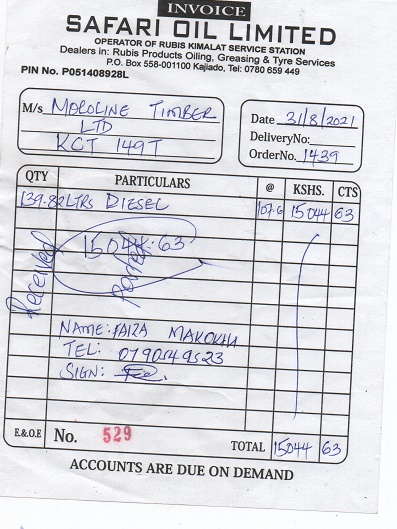 INVOICE
SAFARI OIL LIMITED
OPERATOR OF RUBIS KIMALAT SERVICE STATION
Dealers in: Rubis Products Oiling, Greasing & Tyre Services
P.O. Box 558-001100 Kajiado, Tel: 0780 659 449
PIN No. P051408928L
M/s MAROLINE TIMBER
LTD
KCT 149T
Date 31/8/2021
DeliveryNo:
OrderNo. 1439
QTY PARTICULARS @ KSHS. CTS
139.82 LTRS DIESEL 107.6 15044 63
15044.63
Received
posted
NAME: FAIZA MAKOKHA
TEL: 0790549523
SIGN:
E.&O.E No. 529 TOTAL 15044 63
ACCOUNTS ARE DUE ON DEMAND